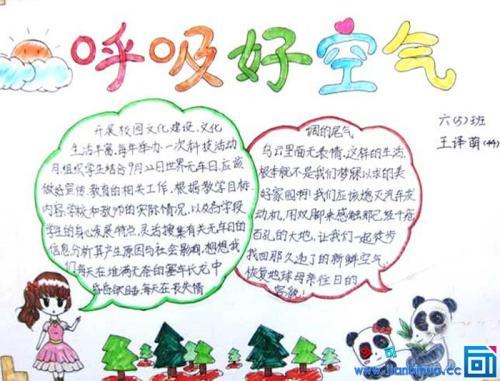 呼吸好空气
六(5)班
王译萌
开展校园文化建设,文化
生活丰富,每年举办一次科技活动
月,组织学生结合9月22日世界无车日,应该
做些宣传,教育的相关工作。根据教学目标
内容,学校和教师的实际情况,以及各学段
学生的身心发展特点,灵活搜集有关无车日的
信息分析其产生原因与社会影响,想想我
们每天在堆满无奈的塞车长龙中
昏昏欲睡每天在丧失情
乌云里面无表情,这样的生活
根本就不是我们梦寐以求的美
好家园啊!我们应该熄灭汽车发
动机,用双脚来感触那已经千疮
百孔的大地,让我们一起徒步
找回那久违了的新鲜空气,
恢复地球母亲往日的
容貌!
www.jianbihua.cc